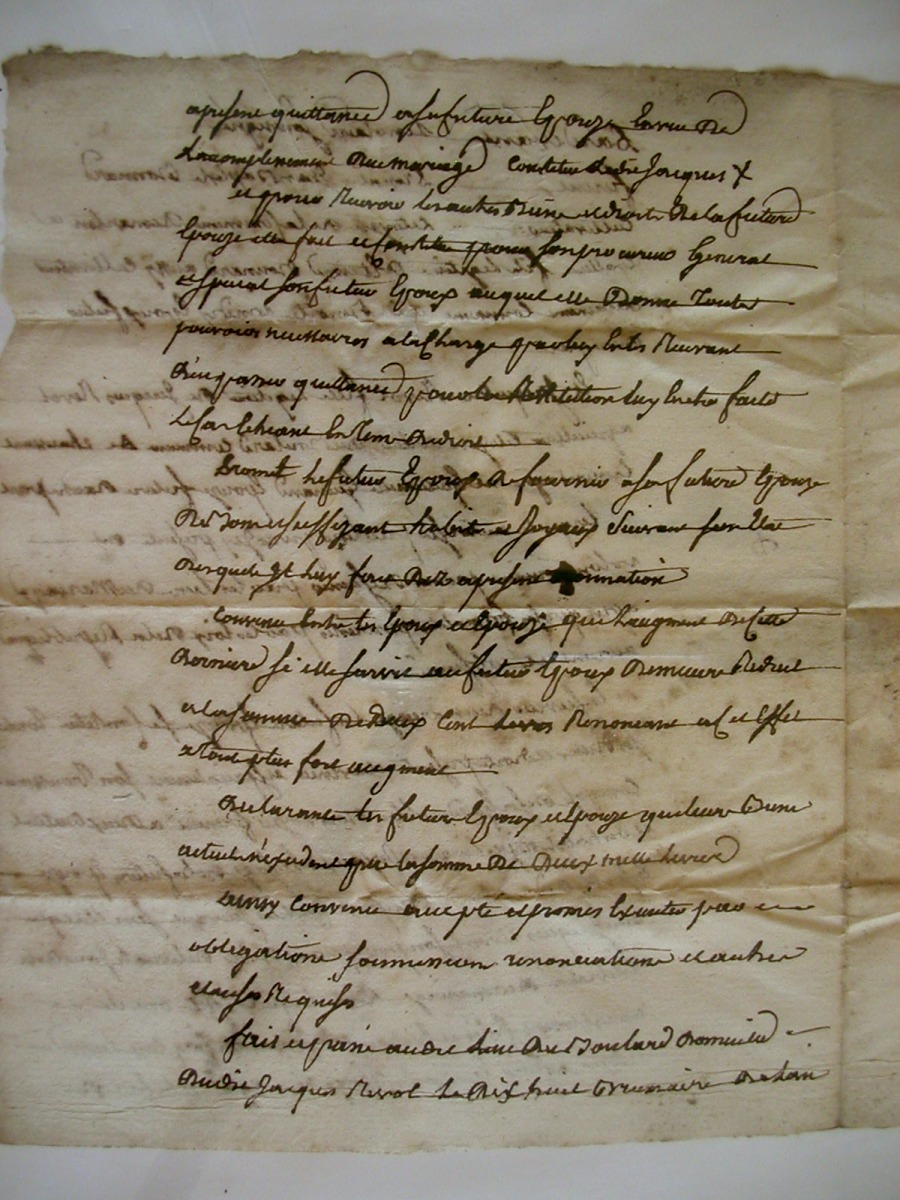 apresent quittance a sa future Epouze En vue de
Laccomplissement du mariage Constitue led Jacques
et pour Recevoir les autres biens et droits de la future
Epouze elle fait et Constitue pour son procureur General
et special son futur Epoux auquel elle donne toutes
pouvoirs necessaires a la Charge que luy les Recevant
d'en passer quittance pour la Restitution luy En etre faite
le Cas Echeant En tems de droit
Promet le futur Epoux de fournir a sa future Epouze
des habits et Joyaux suivant son Etat
desquels Il luy fait dez apresent donnation
Convenu Entre les Epoux et Epouze que L'augment de Cette
derniere si elle survit au futur Epoux demeure Reduit
a la somme de deux Cent Livres Renonçant a Cet Effet
a tout plus fort augment
declarant les futurs Epoux et Epouze que leurs biens
actuels n'excedent que la somme de deux mille livres
ainsy Convenu accepté et promis Executer par
obligations soumission renonciations et autres
clauses Requises
fait et passé aud lieu de domicile
dudit Jacques Revol le dix huit brumaire de l'an